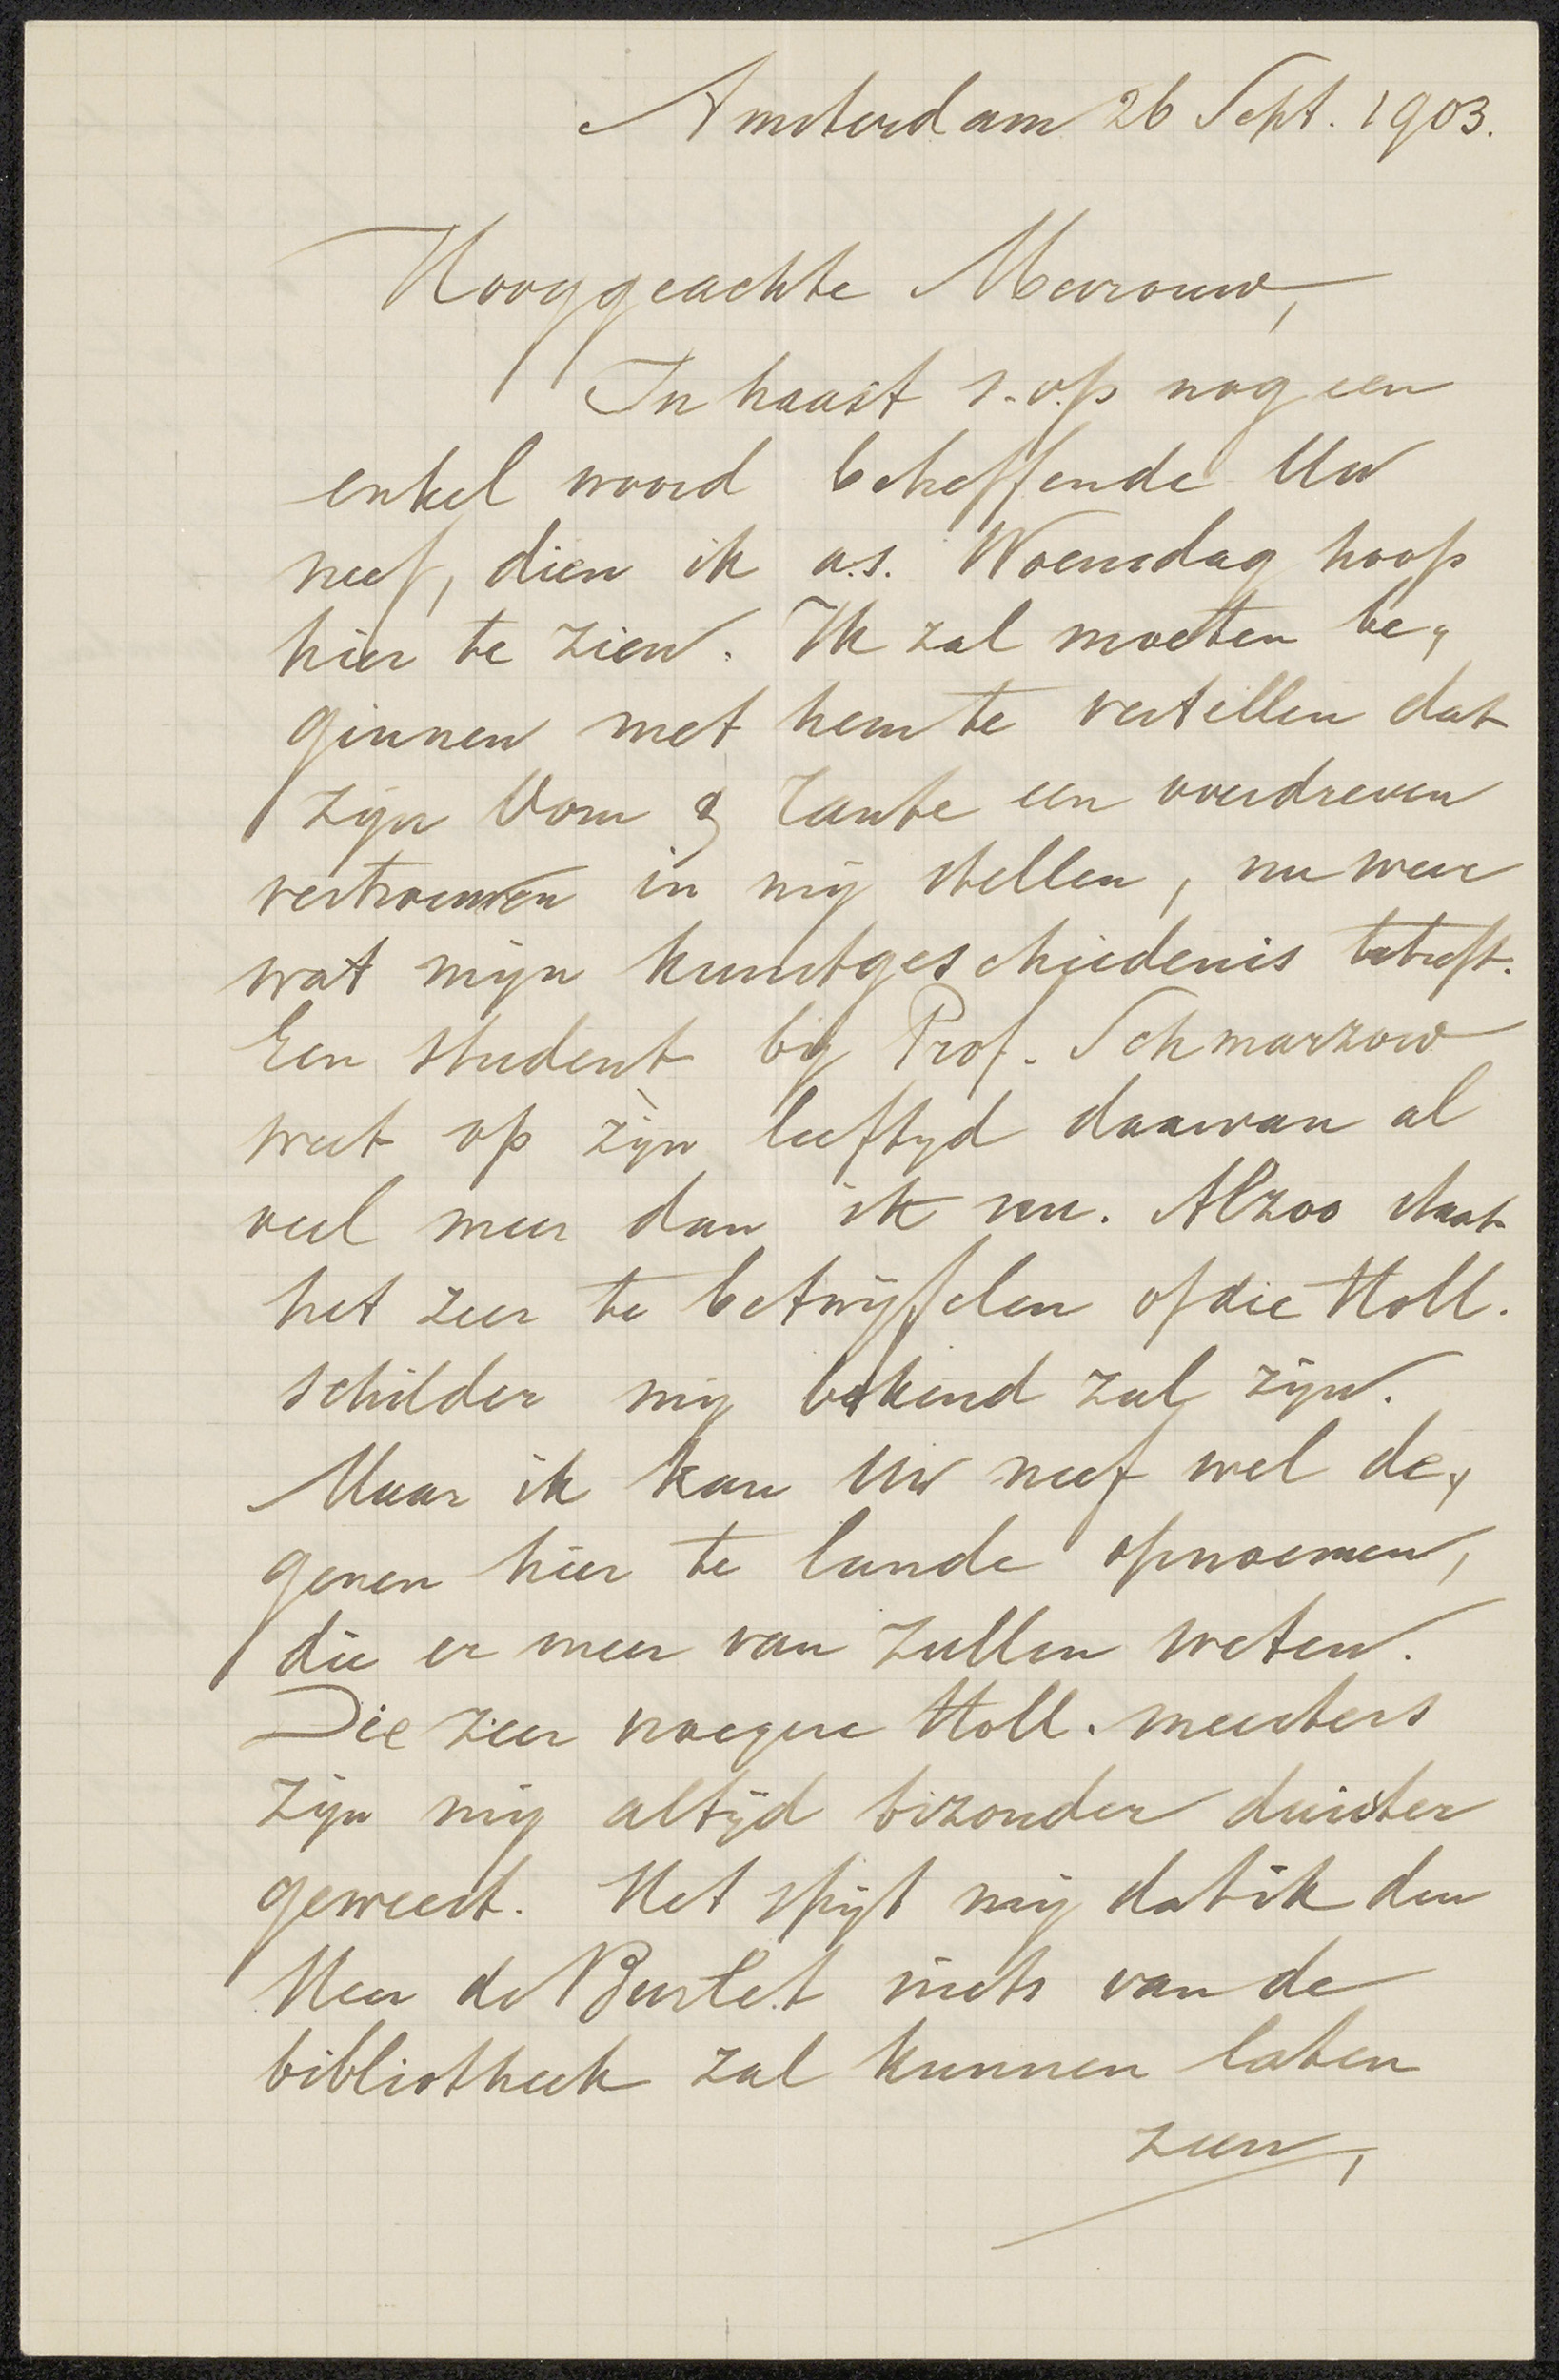 Amsterdam 26 Sept. 1903.
Hooggeachte Mevrouw,
In haast s.o.p nog een
enkel woord betreffende Uw
neef, dien ik a.s. Woensdag hoop
hier te zien. Ik zal moeten be„
ginnen met hem te vertellen dat
zijn Oom & Tante een overdreven
vertrouwen in mij stellen, nu weer
wat mijn kunstgeschiedenis betreft.
Een student bij Prof. Schmarzow
weet op zijn leeftijd daarvan al
veel meer dan ik nu. Alzoo staat
het zeer te betwijffelen of die Holl.
schilder mij bekend zal zijn.
Maar ik kan Uw neef wel de„
genen hier te lande opnoemen,
die er meer van zullen weten.
Die zeer vroegere Holl. meesters
zijn mij altijd bizonder duister
geweest. Het spijt mij dat ik den
Heer de Burlet niets van de
bibliotheek zal kunnen laten
zien,